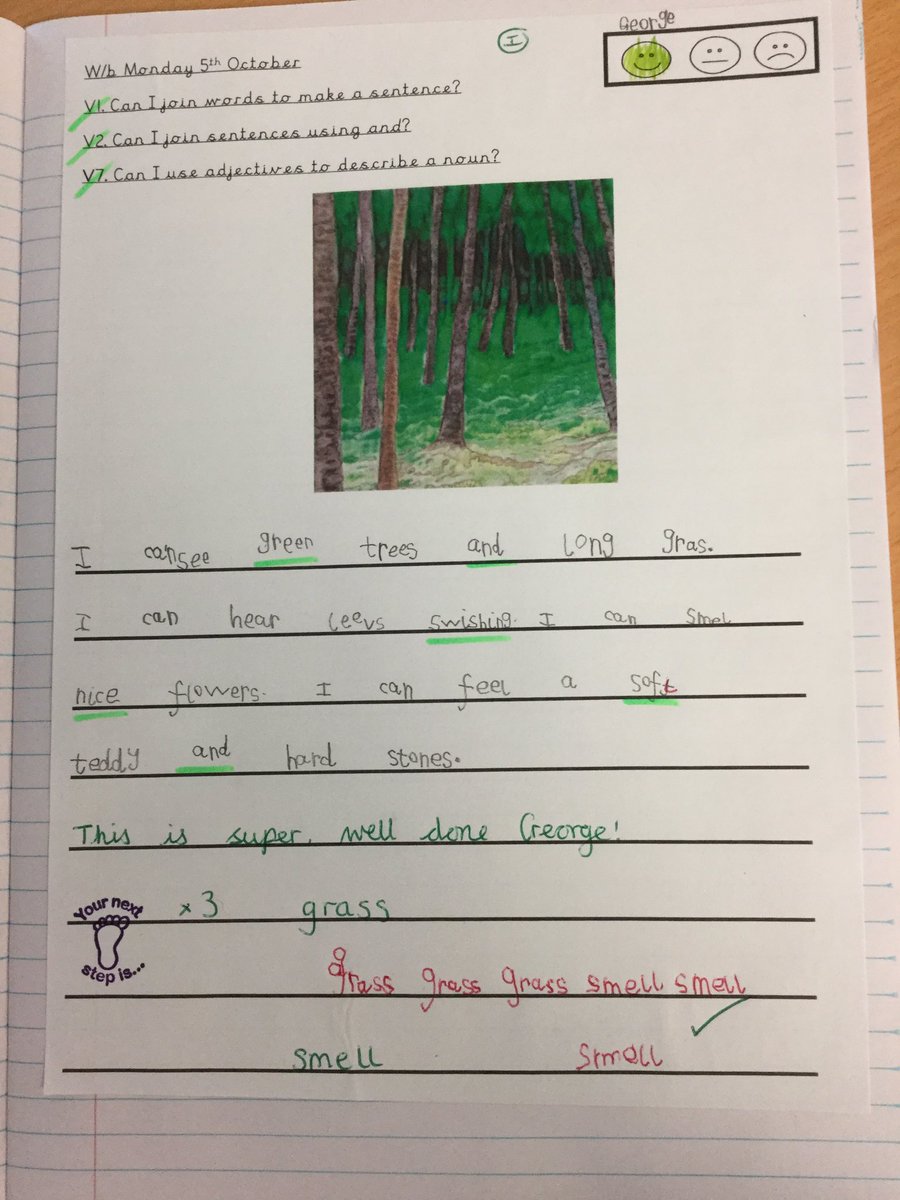 George
I
W/b Monday 5th October
V1. Can I join words to make a sentence?
V2. Can I join sentences using and?
V7. Can I use adjectives to describe a noun?
I can see green trees and long gras.
I can hear leevs swishing. I can smel
nice flowers. I can feel a soft
teddy and hard stones.
This is super, well done George!
Your next
step is...
x3 grass
grass grass grass smell smell
smell smell